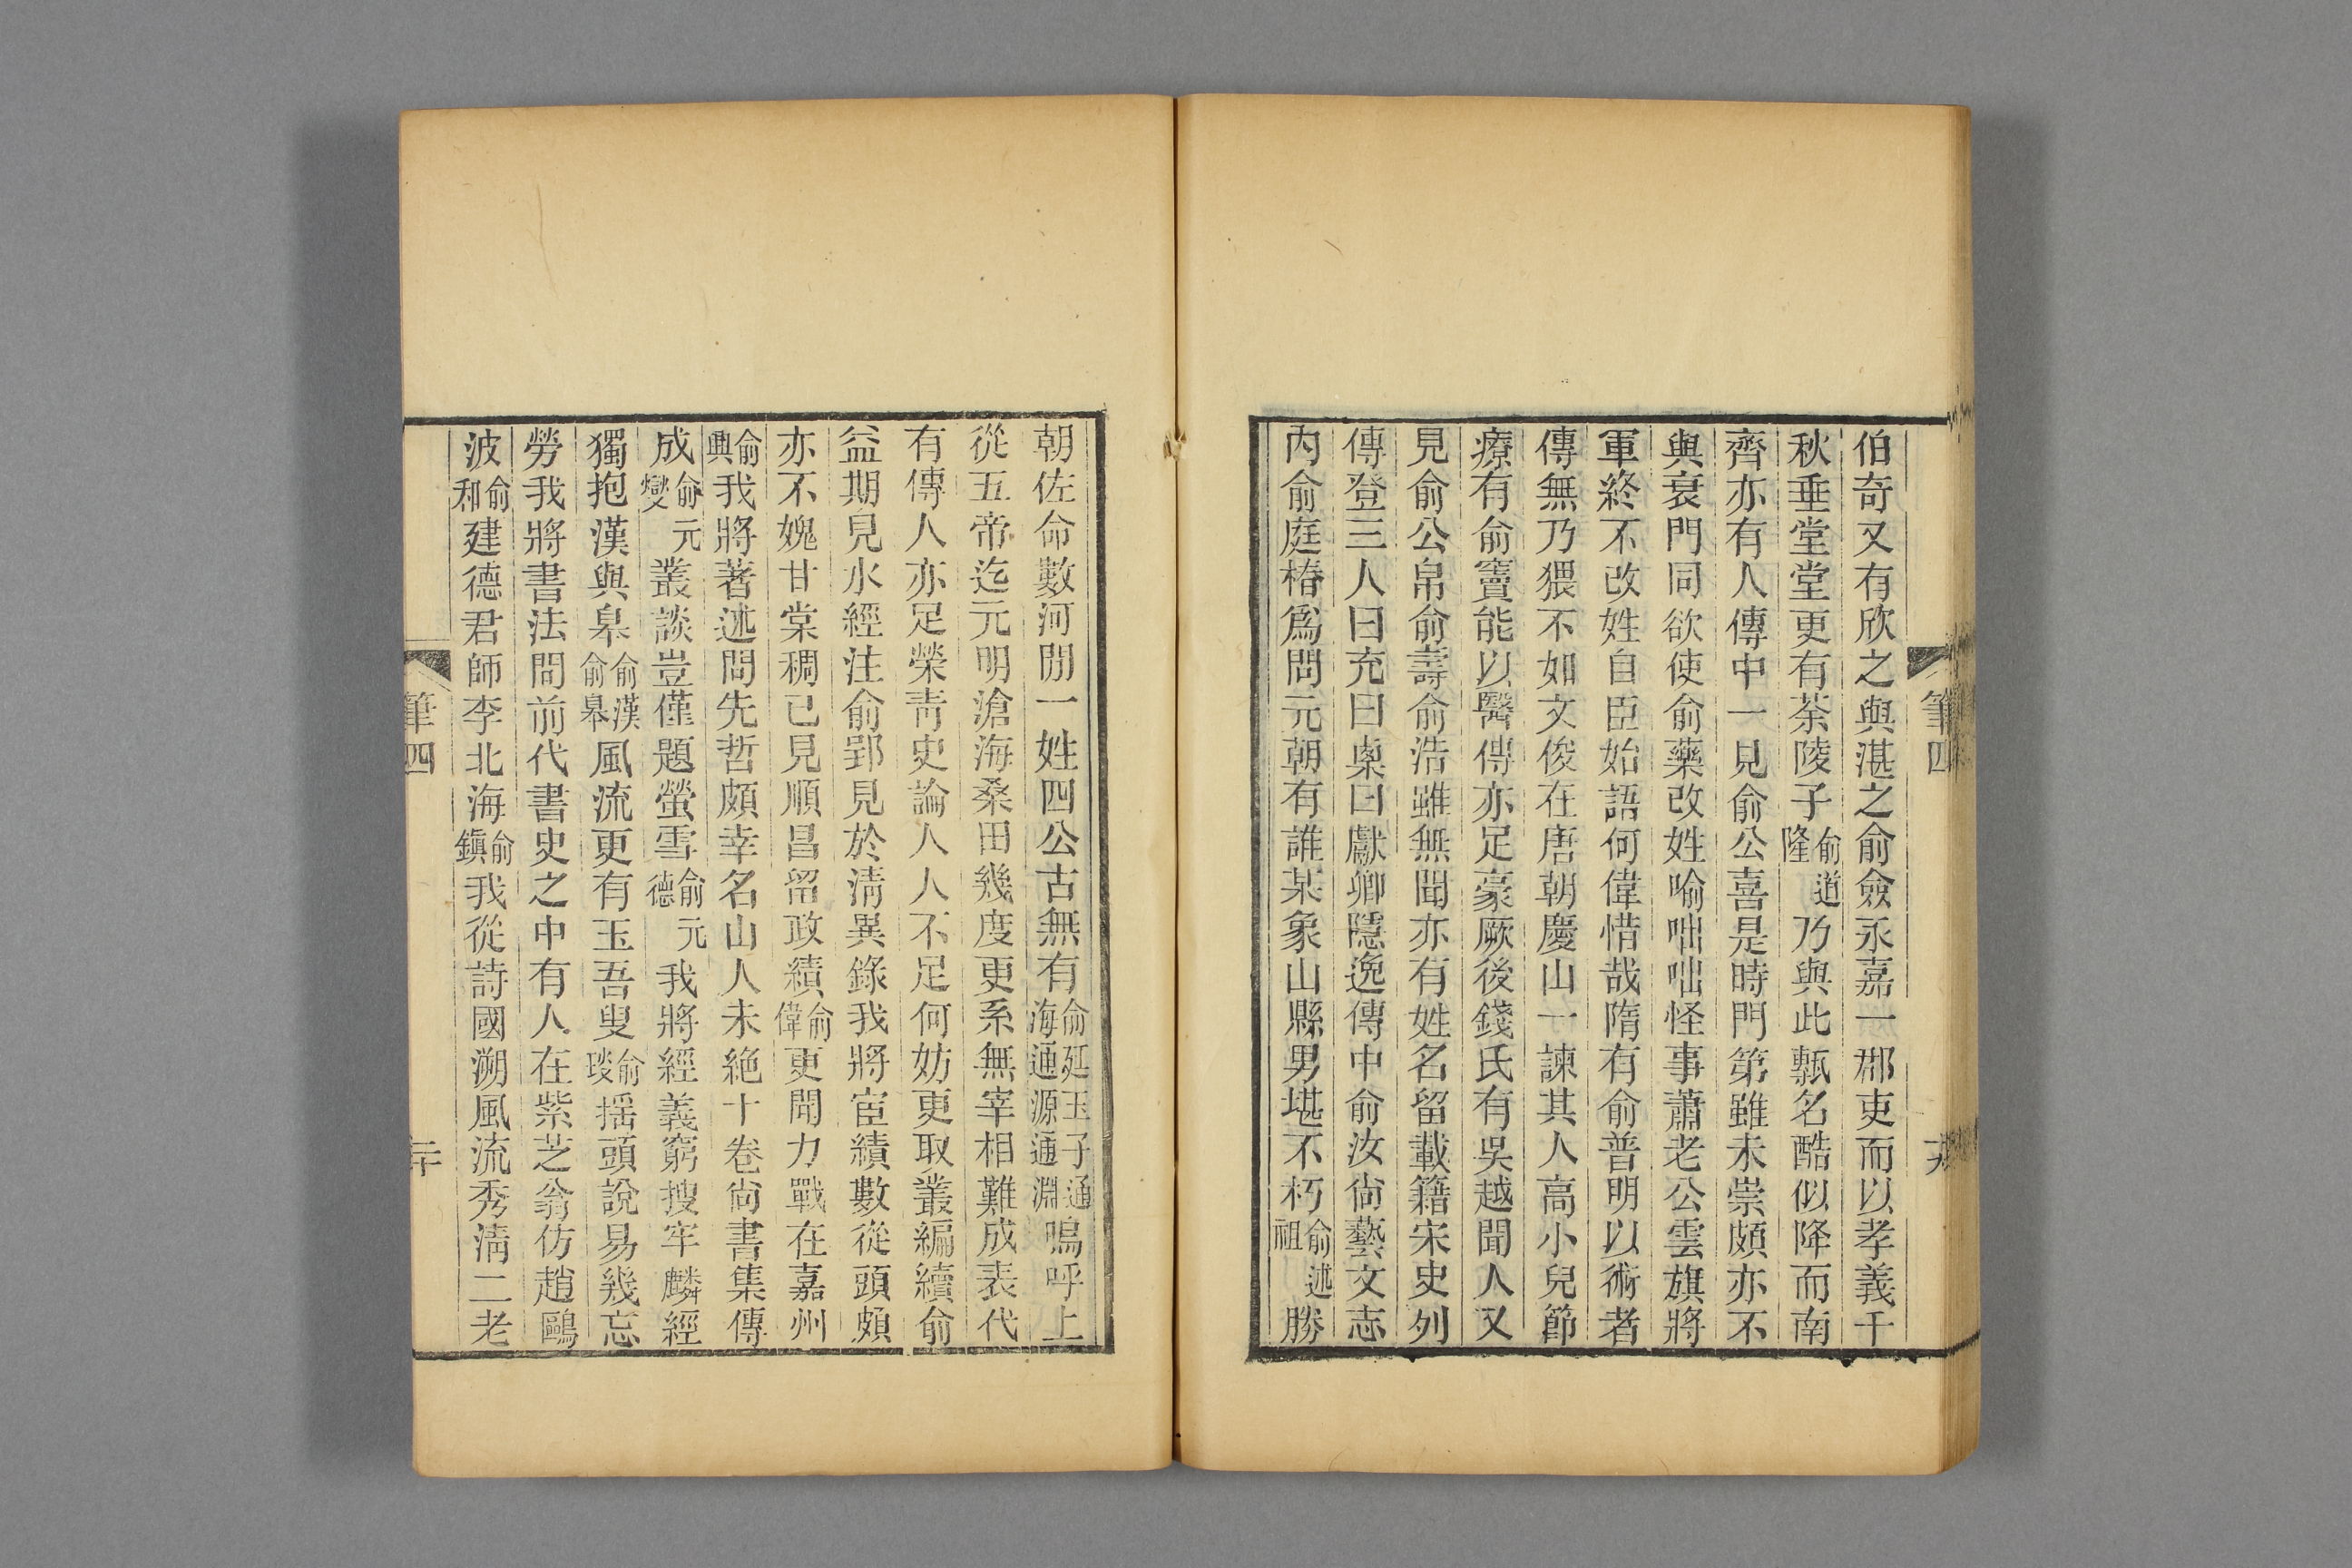 伯奇又有欣之與湛之俞僉永嘉一郡吏而以孝義千
秋垂堂堂更有荼陵子俞道隆乃與此甎名酷似降而南
齊亦有人傳中一見俞公喜是時門第雖未崇頗亦不
與衰門同欲使俞藥改姓喻咄咄怪事蕭老公雲旗將
軍終不改姓自臣始語何偉惜哉隋有俞普明以術者
傳無乃猥不如文俊在唐朝慶山一諫其人高小兒節
療有俞寶能以醫傳亦足豪厥後錢氏有吳越聞人又
見俞公帛俞壽俞浩雖無聞亦有姓名留載籍宋史列
傳登三人曰充曰㮚曰獻卿隱逸傳中俞汝尙藝文志
內俞庭椿爲問元朝有誰某象山縣男堪不朽俞述祖勝
筆四
朝佐命數河閒一姓四公古無有俞廷玉子通海通源通淵嗚呼上
從五帝迄元明滄海桑田幾度更系無宰相難成表代
有傳人亦足榮靑史論人人不足何妨更取叢編續俞
益期見水經注俞郢見於淸異錄我將宦績數從頭頗
亦不媿甘棠稠已見順昌留政績俞偉更聞力戰在嘉州
俞興我將著述問先哲頗幸名山人未絕十卷尙書集傳
成俞元燮叢談豈僅題螢雪俞元德我將經義窮搜牢麟經
獨抱漢與皋俞漢俞皋風流更有玉吾叟俞琰搖頭說易幾忘
勞我將書法問前代書史之中有人在紫芝翁仿趙鷗
波俞和建德君師李北海俞鎭我從詩國溯風流秀淸二老
筆四
二十